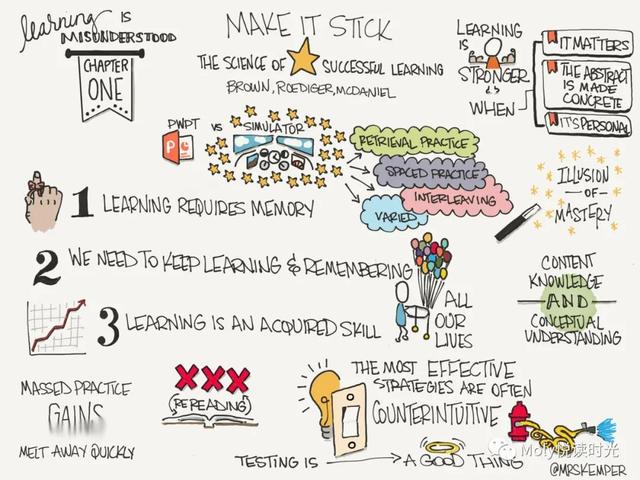 learning IS
MISUNDERSTOOD
CHAPTER
ONE
MAKE IT STICK
THE SCIENCE OF SUCCESSFUL LEARNING
BROWN, ROEDIGER, MCDANIEL
LEARNING
IS
STRONGER
WHEN
IT MATTERS
THE ABSTRACT
IS MADE
CONCRETE
IT'S PERSONAL
PWPT vs SIMULATOR
P
RETRIEVAL PRACTICE
SPACED PRACTICE
INTERLEAVING
VARIED
ILLUSION
OF
MASTERY
1 LEARNING REQUIRES MEMORY
2 WE NEED TO KEEP LEARNING & REMEMBERING
ALL
OUR
LIVES
3 LEARNING IS AN ACQUIRED SKILL
CONTENT
KNOWLEDGE
AND
CONCEPTUAL
UNDERSTANDING
MASSED PRACTICE
GAINS
MELT AWAY QUICKLY
(RE READING)
THE MOST EFFECTIVE
STRATEGIES ARE OFTEN
COUNTERINTUITIVE
TESTING IS A GOOD THING
Moly悦读时光
@MRSKEMPER